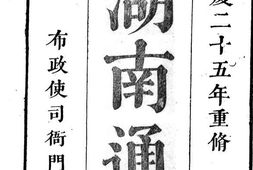 慶二十五年重脩
湖南通
布政使司衙門